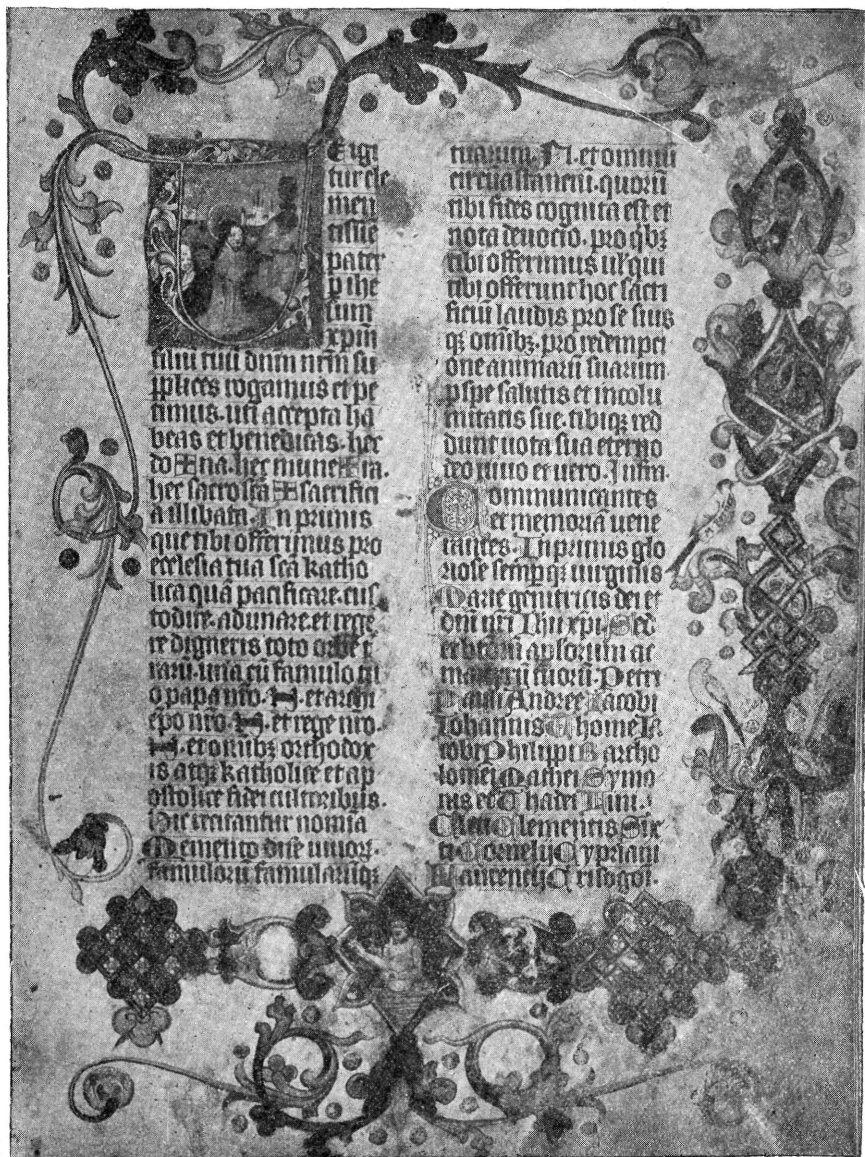 E igi
tur cle
men
tissıe
pater
p ihe
sum
xpm
filiu tuu dnm nrm su
pplices rogamus et pe
timus. uti accepta ha
beas et benedicas. hec
do✠na. hec mune✠ra.
hec sacrosca ✠ sacrifici
a illibata. In primis
que tibi offerimus pro
ecclesia tua sca katho
lica quā pacificare. cus
todire. adunare. et rege
re digneris toto orbe t
rarū. una cū famulo tu
o papa nro. N. et archi
epo nro. N. et rege nro.
N. et omibz orthodox
is atqz katholice et ap
ostolice fidei cultoribus.
Hic recitantur nomia
Memento dne uiuor.
famulorū famularūqz
tuarum. N. et omniū
circūastanciū. quorū
tibi fides cognita est et
nota deuocio. pro qbz
tibi offerimus ul' qui
tibi offerunt hoc sacri
ficiū laudis pro se suis
qz omībz. pro redempci
one animarū suarum
p spe salutis et incolu
mitatis sue. tibiqz red
dunt uota sua eterno
deo uiuo et uero. Infra
Communicantes
et memoriā uene
rantes. In primis glo
riose sempqz uirginis
Marie genitricis dei et
dni nri Ihu xpi. Sed
et btorū aplorum ac
martyrū tuorū. Petri
Pauli Andree Jacobi
Iohannis Thome Ja
cobi Philippi Bartho
lomei Mathei Symo
nis et Thadei Lini.
Cleti Clementis Six
ti Cornelij Cypriani
Laurentij Crisogoī.